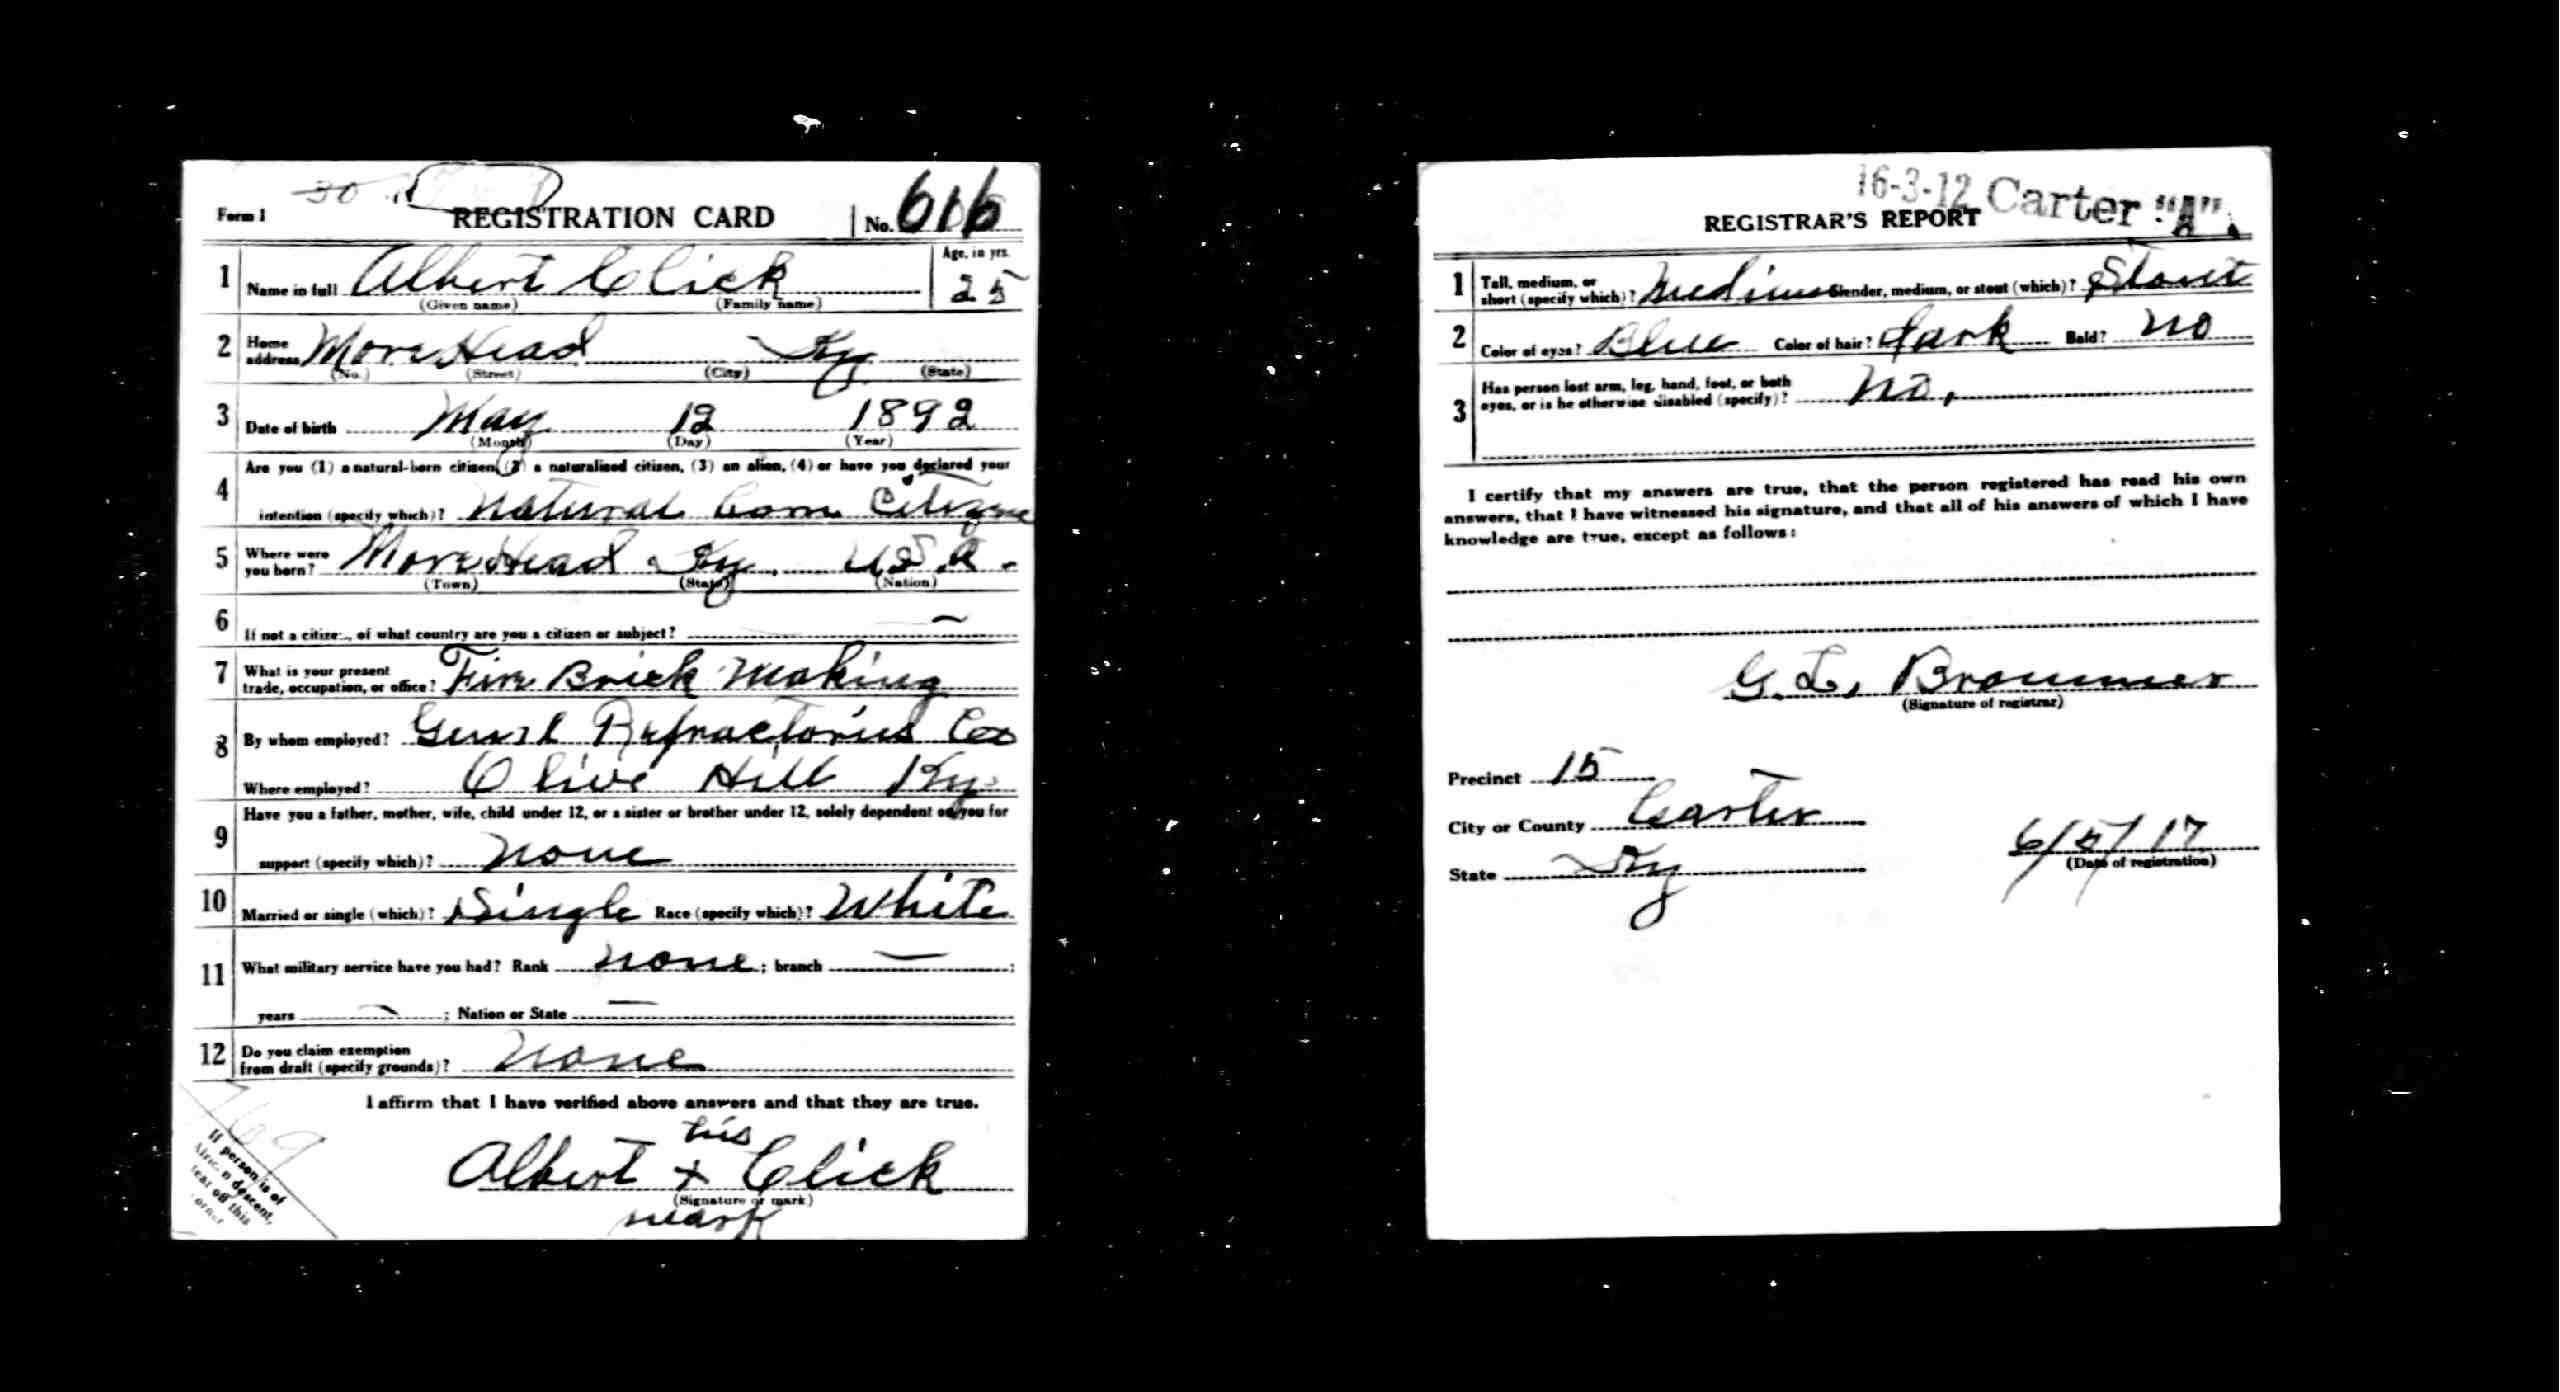 Form 1 REGISTRATION CARD No. 616
1 Name in full Albert Click Age, in yrs. 25
(Given name) (Family name)
2 Home address MoreHead Ky
(No.) (Street) (City) (State)
3 Date of birth May 12 1892
(Month) (Day) (Year)
4 Are you (1) a natural-born citizen, (2) a naturalized citizen, (3) an alien, (4) or have you declared your
intention (specify which)? Natural born
5 Where were you born? MoreHead Ky. U.S.A.
(Town) (State) (Nation)
6 If not a citizen, of what country are you a citizen or subject? —
7 What is your present trade, occupation, or office? Fire Brick Making
8 By whom employed? Refractories Co
Where employed? Olive Hill Ky
9 Have you a father, mother, wife, child under 12, or a sister or brother under 12, solely dependent on you for
support (specify which)? None
10 Married or single (which)? Single Race (specify which)? White
11 What military service have you had? Rank None; branch —;
years —; Nation or State —
12 Do you claim exemption from draft (specify grounds)? None
I affirm that I have verified above answers and that they are true.
his
Albert x Click
(Signature or mark)
mark
If person is of
African descent,
tear off this
corner
16-3-12 Carter "A"
REGISTRAR'S REPORT
1 Tall, medium, or short (specify which)? Medium Slender, medium, or stout (which)? Stout
2 Color of eyes? Blue Color of hair? dark Bald? No
3 Has person lost arm, leg, hand, foot, or both
eyes, or is he otherwise disabled (specify)? No,
I certify that my answers are true, that the person registered has read his own
answers, that I have witnessed his signature, and that all of his answers of which I have
knowledge are true, except as follows:
G. L.
(Signature of registrar)
Precinct 15
City or County Carter
State Ky
6/5/17
(Date of registration)